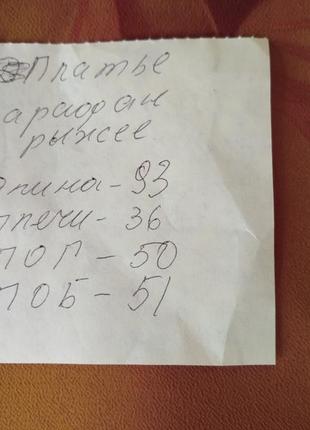 Платье
арафан
рыжее
лина - 93
лечи - 36
ПОГ - 50
ПОБ - 51